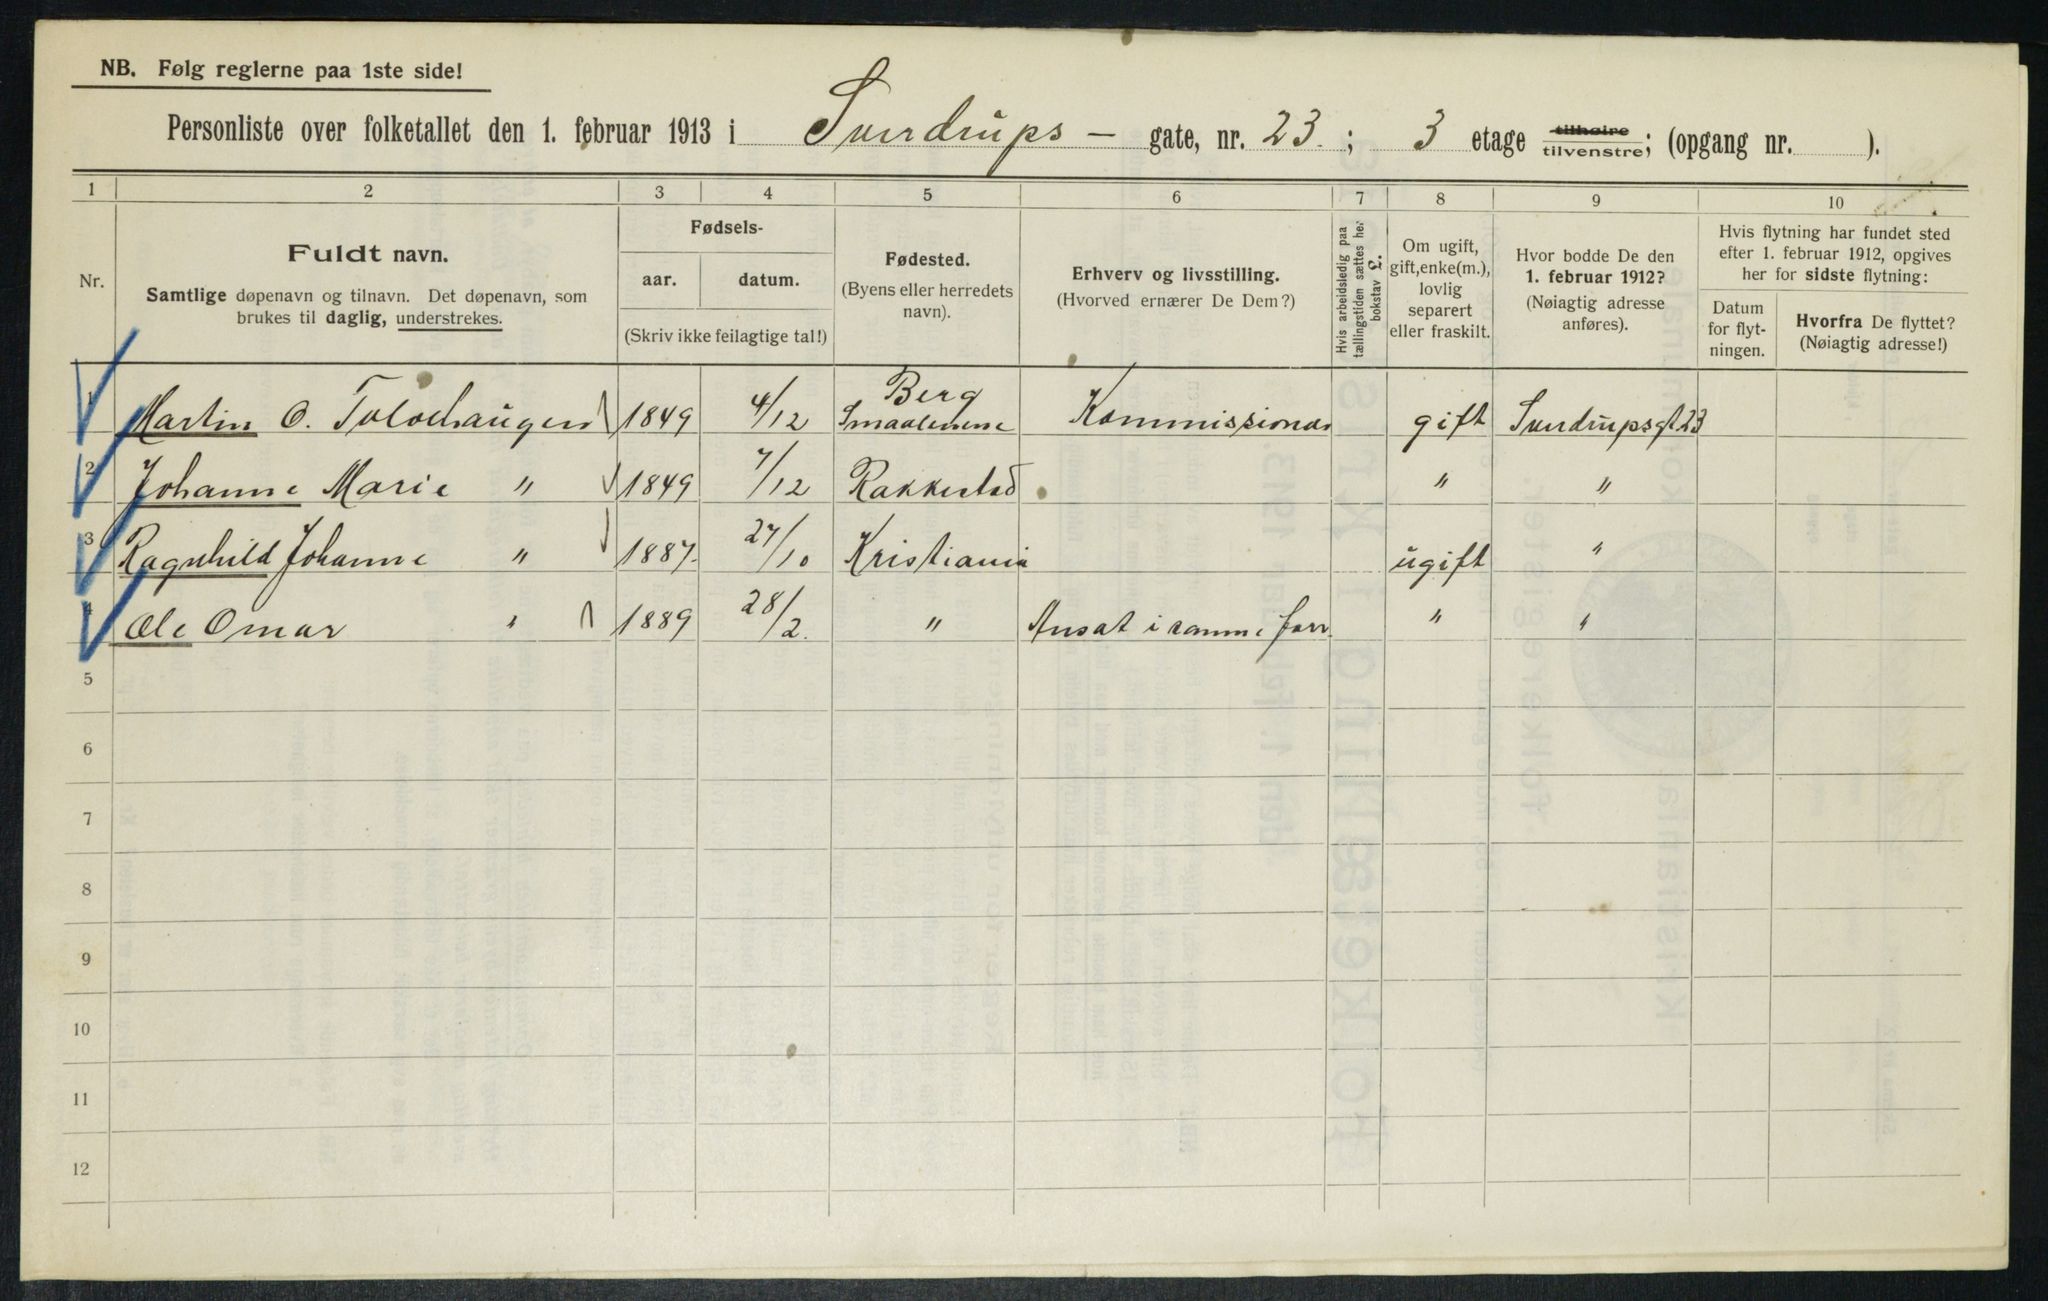 NB. Følg reglerne paa 1ste side!
Personliste over folketallet den 1. februar 1913 i Sverdrups - gate, nr. 23. ; 3 etage tilhøire tilvenstre; (opgang nr. ).
1 2 3 4 5 6 7 8 9 10
Nr.
Fuldt navn.
Samtlige døpenavn og tilnavn. Det døpenavn, som
brukes til daglig, understrekes.
Fødsels-
aar. datum.
(Skriv ikke feilagtige tal!)
Fødested.
(Byens eller herredets
navn).
Erhverv og livsstilling.
(Hvorved ernærer De Dem?)
Hvis arbeidsledig paa
tællingstiden sættes her
bokstav L.
Om ugift,
gift, enke(m.),
lovlig
separert
eller fraskilt.
Hvor bodde De den
1. februar 1912?
(Nøiagtig adresse
anføres).
Hvis flytning har fundet sted
efter 1. februar 1912, opgives
her for sidste flytning:
Datum
for flyt-
ningen.
Hvorfra De flyttet?
(Nøiagtig adresse!)
1 Martin O. 1849 4/12 Berg Smaalenene Kommissionær gift Sverdrupsgt 23
2 Johanne Marie " 1849 7/12 Rakkestad " "
3 Ragnhild Johanne " 1887. 27/10 Kristiania ugift "
4 Ole Omar " 1889 28/2. " Ansat i samme forr. " "
5
6
7
8
9
10
11
12